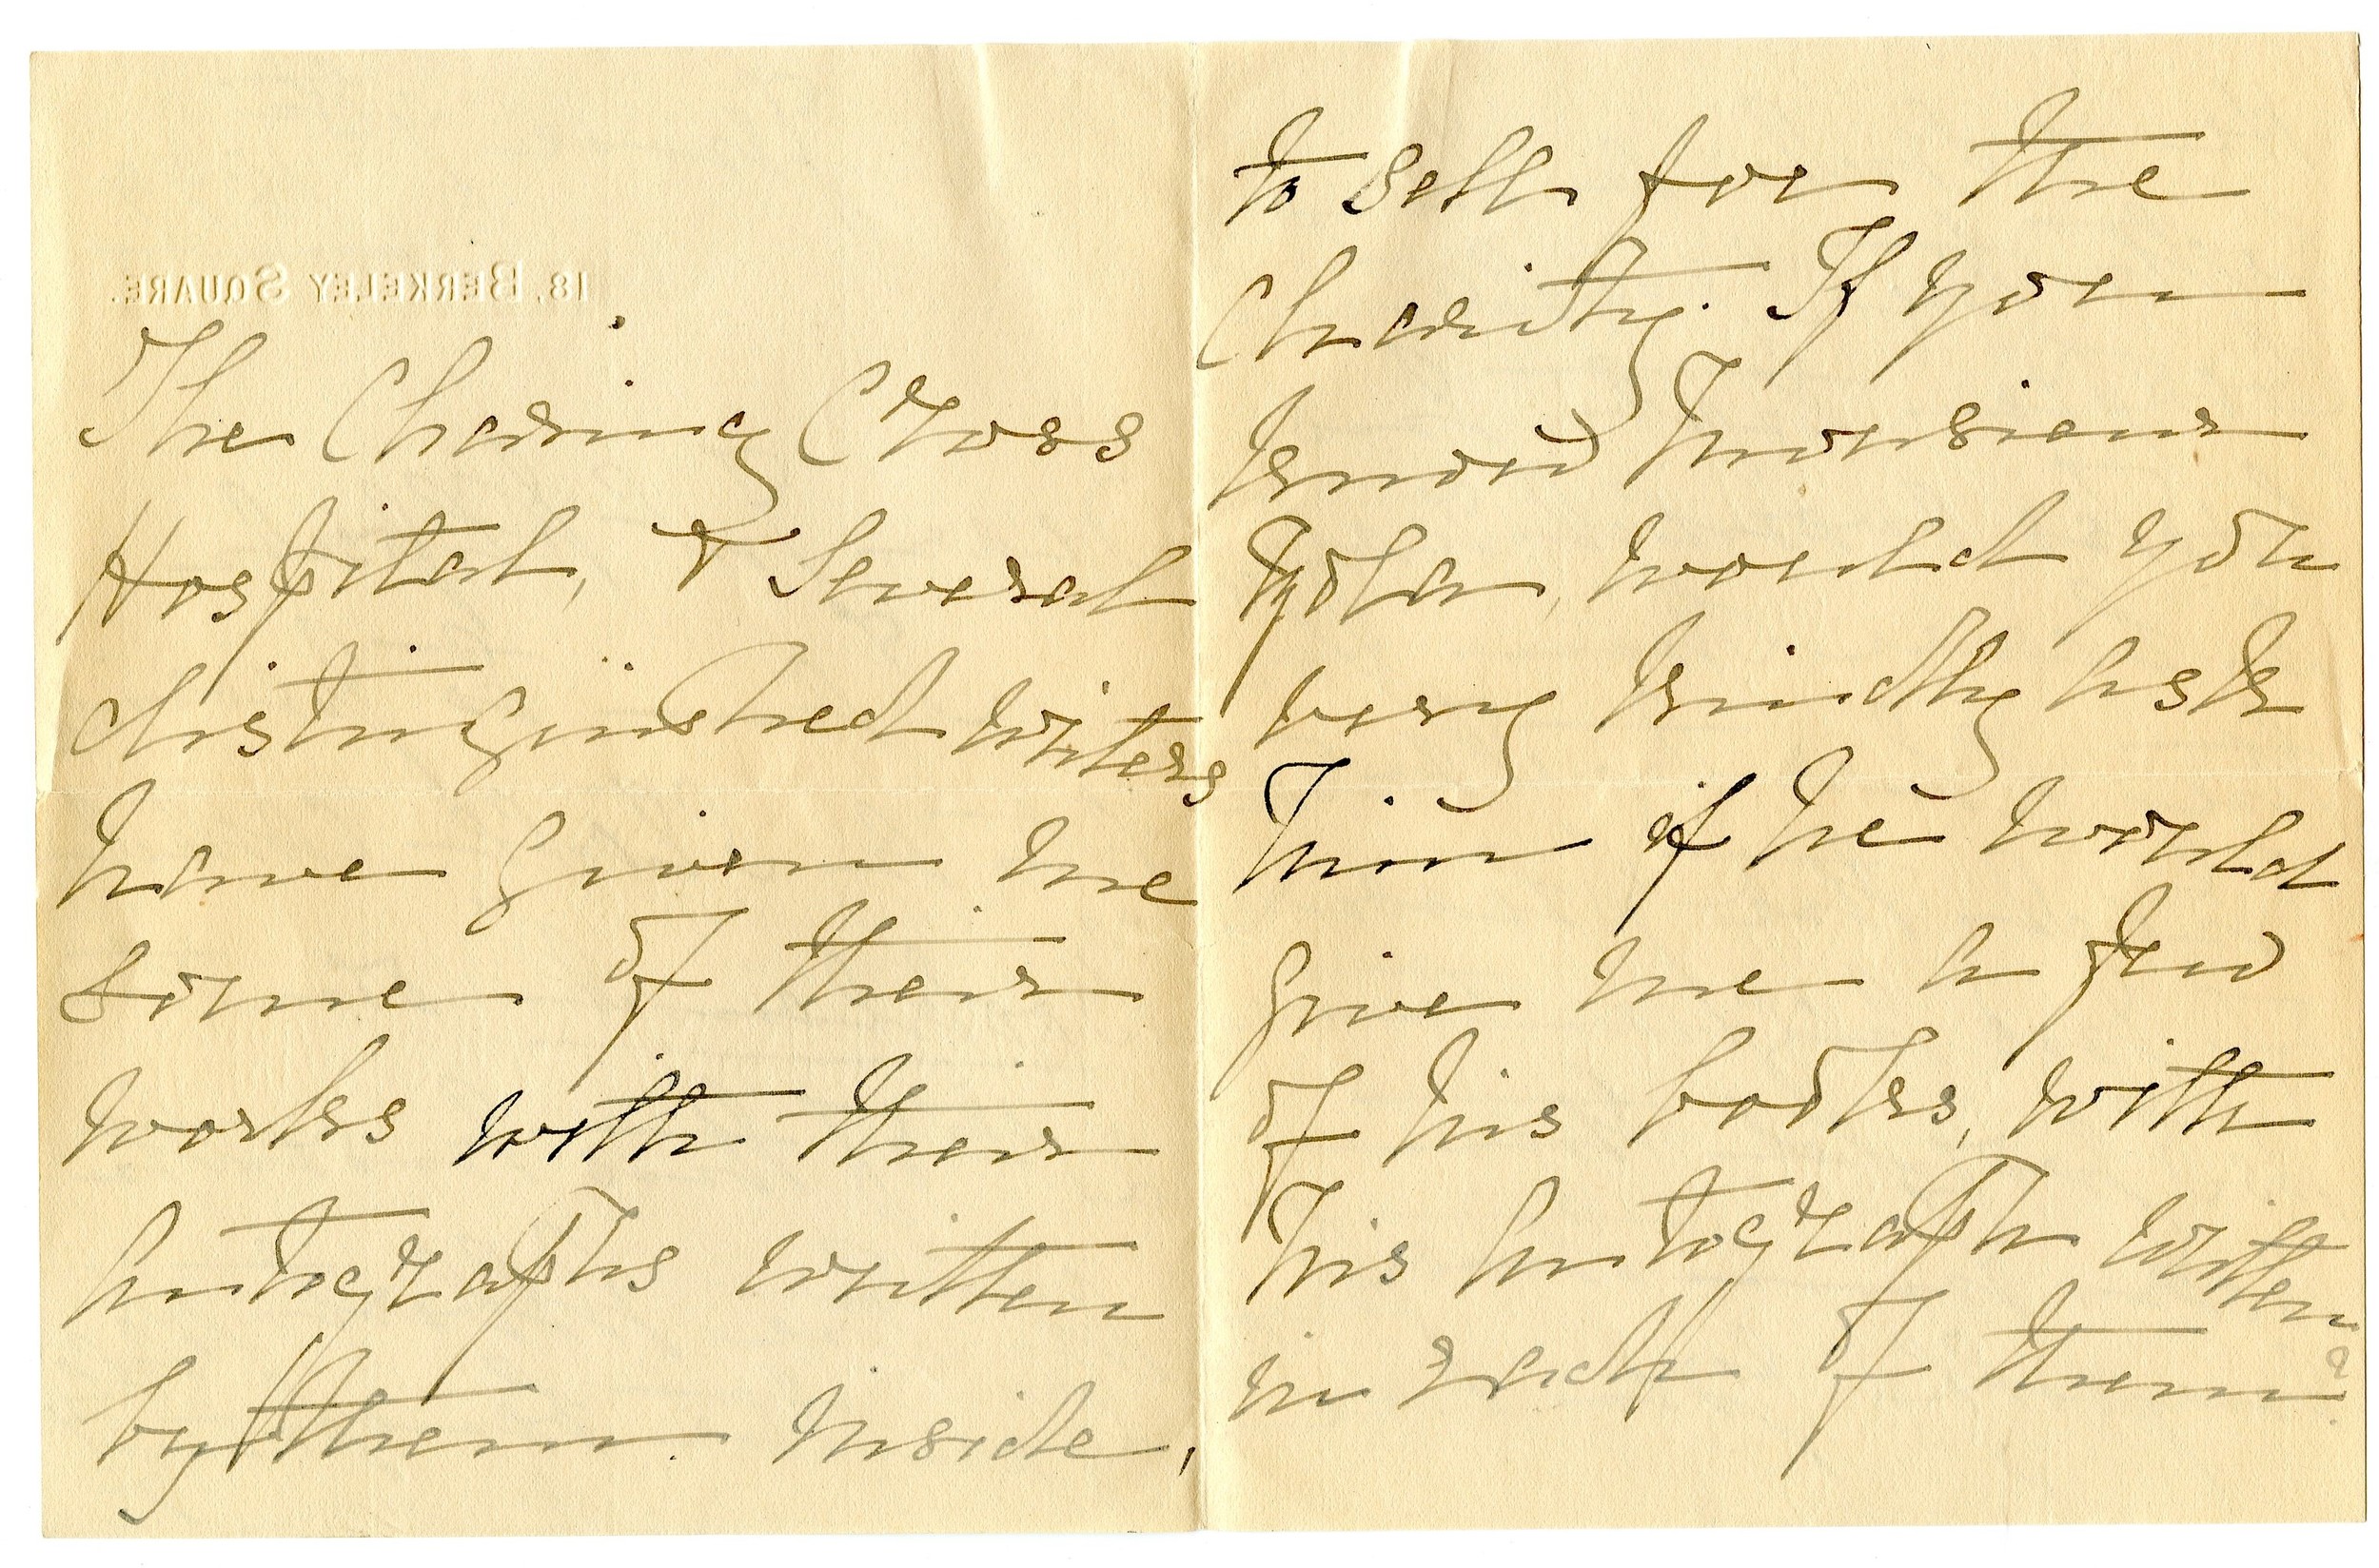 18, BERKELEY SQUARE.
The Charing Cross
Hospital, & Several
distinguished writers
have given me
some of their
works with their
autographs written
by them inside,
to sell for the
Charity. If you
know Monsieur
Zola, would you
very kindly ask
him if he would
give me a few
of his books, with
his autograph written
in each of them?